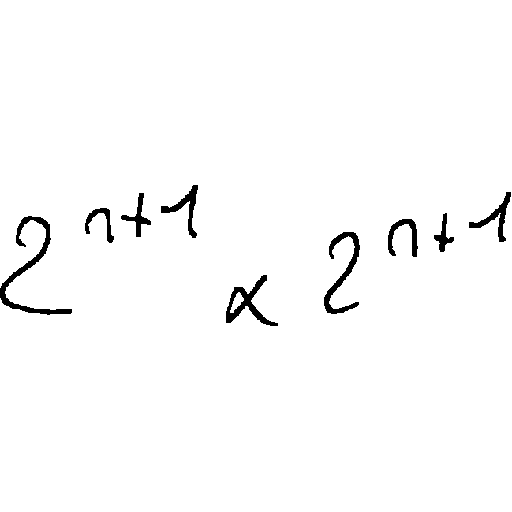 2^{n+1} \times 2^{n+1}